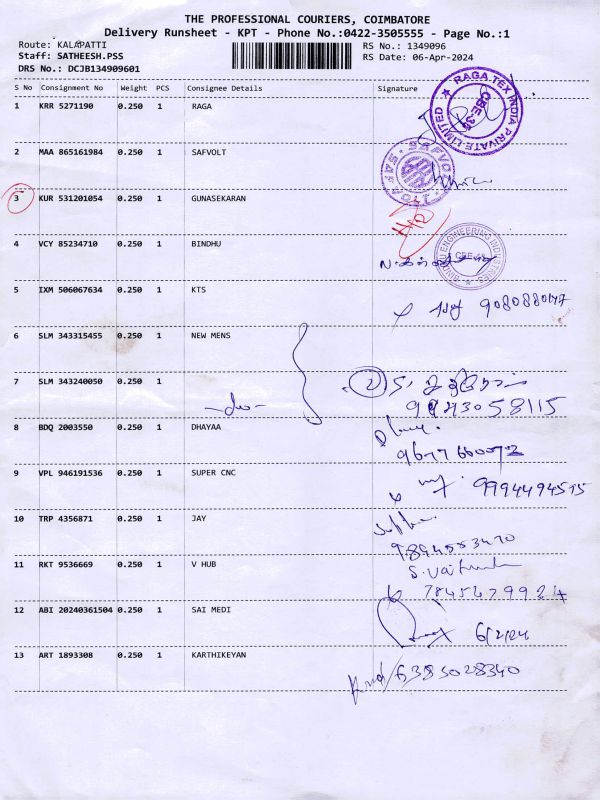 THE PROFESSIONAL COURIERS, COIMBATORE
Delivery Runsheet - KPT - Phone No.:0422-3505555 - Page No.:1
Route: KALAPATTI
RS No.: 1349096
Staff: SATHEESH.PSS
RS Date: 06-Apr-2024
DRS No.: DCJB134909601
S No Consignment No Weight PCS Consignee Details Signature
1 KRR 5271190 0.250 1 RAGA
RAGA TEX INDIA PRIVATE LIMITED ★ CBE-35
2 MAA 865161984 0.250 1 SAFVOLT
SAFVOLT
3 KUR 531201054 0.250 1 GUNASEKARAN
4 VCY 85234710 0.250 1 BINDHU
BINDHU ENGINEERING INDUSTRIES ★
5 IXM 506067634 0.250 1 KTS
9080880147
6 SLM 343315455 0.250 1 NEW MENS
7 SLM 343240050 0.250 1
-do-
2
9943058115
8 BDQ 2003550 0.250 1 DHAYAA
9677660072
9 VPL 946191536 0.250 1 SUPER CNC
9994494515
10 TRP 4356871 0.250 1 JAY
9894583470
11 RKT 9536669 0.250 1 V HUB
7845679924
12 ABI 20240361504 0.250 1 SAI MEDI
6/4/24
13 ART 1893308 0.250 1 KARTHIKEYAN
6385028340